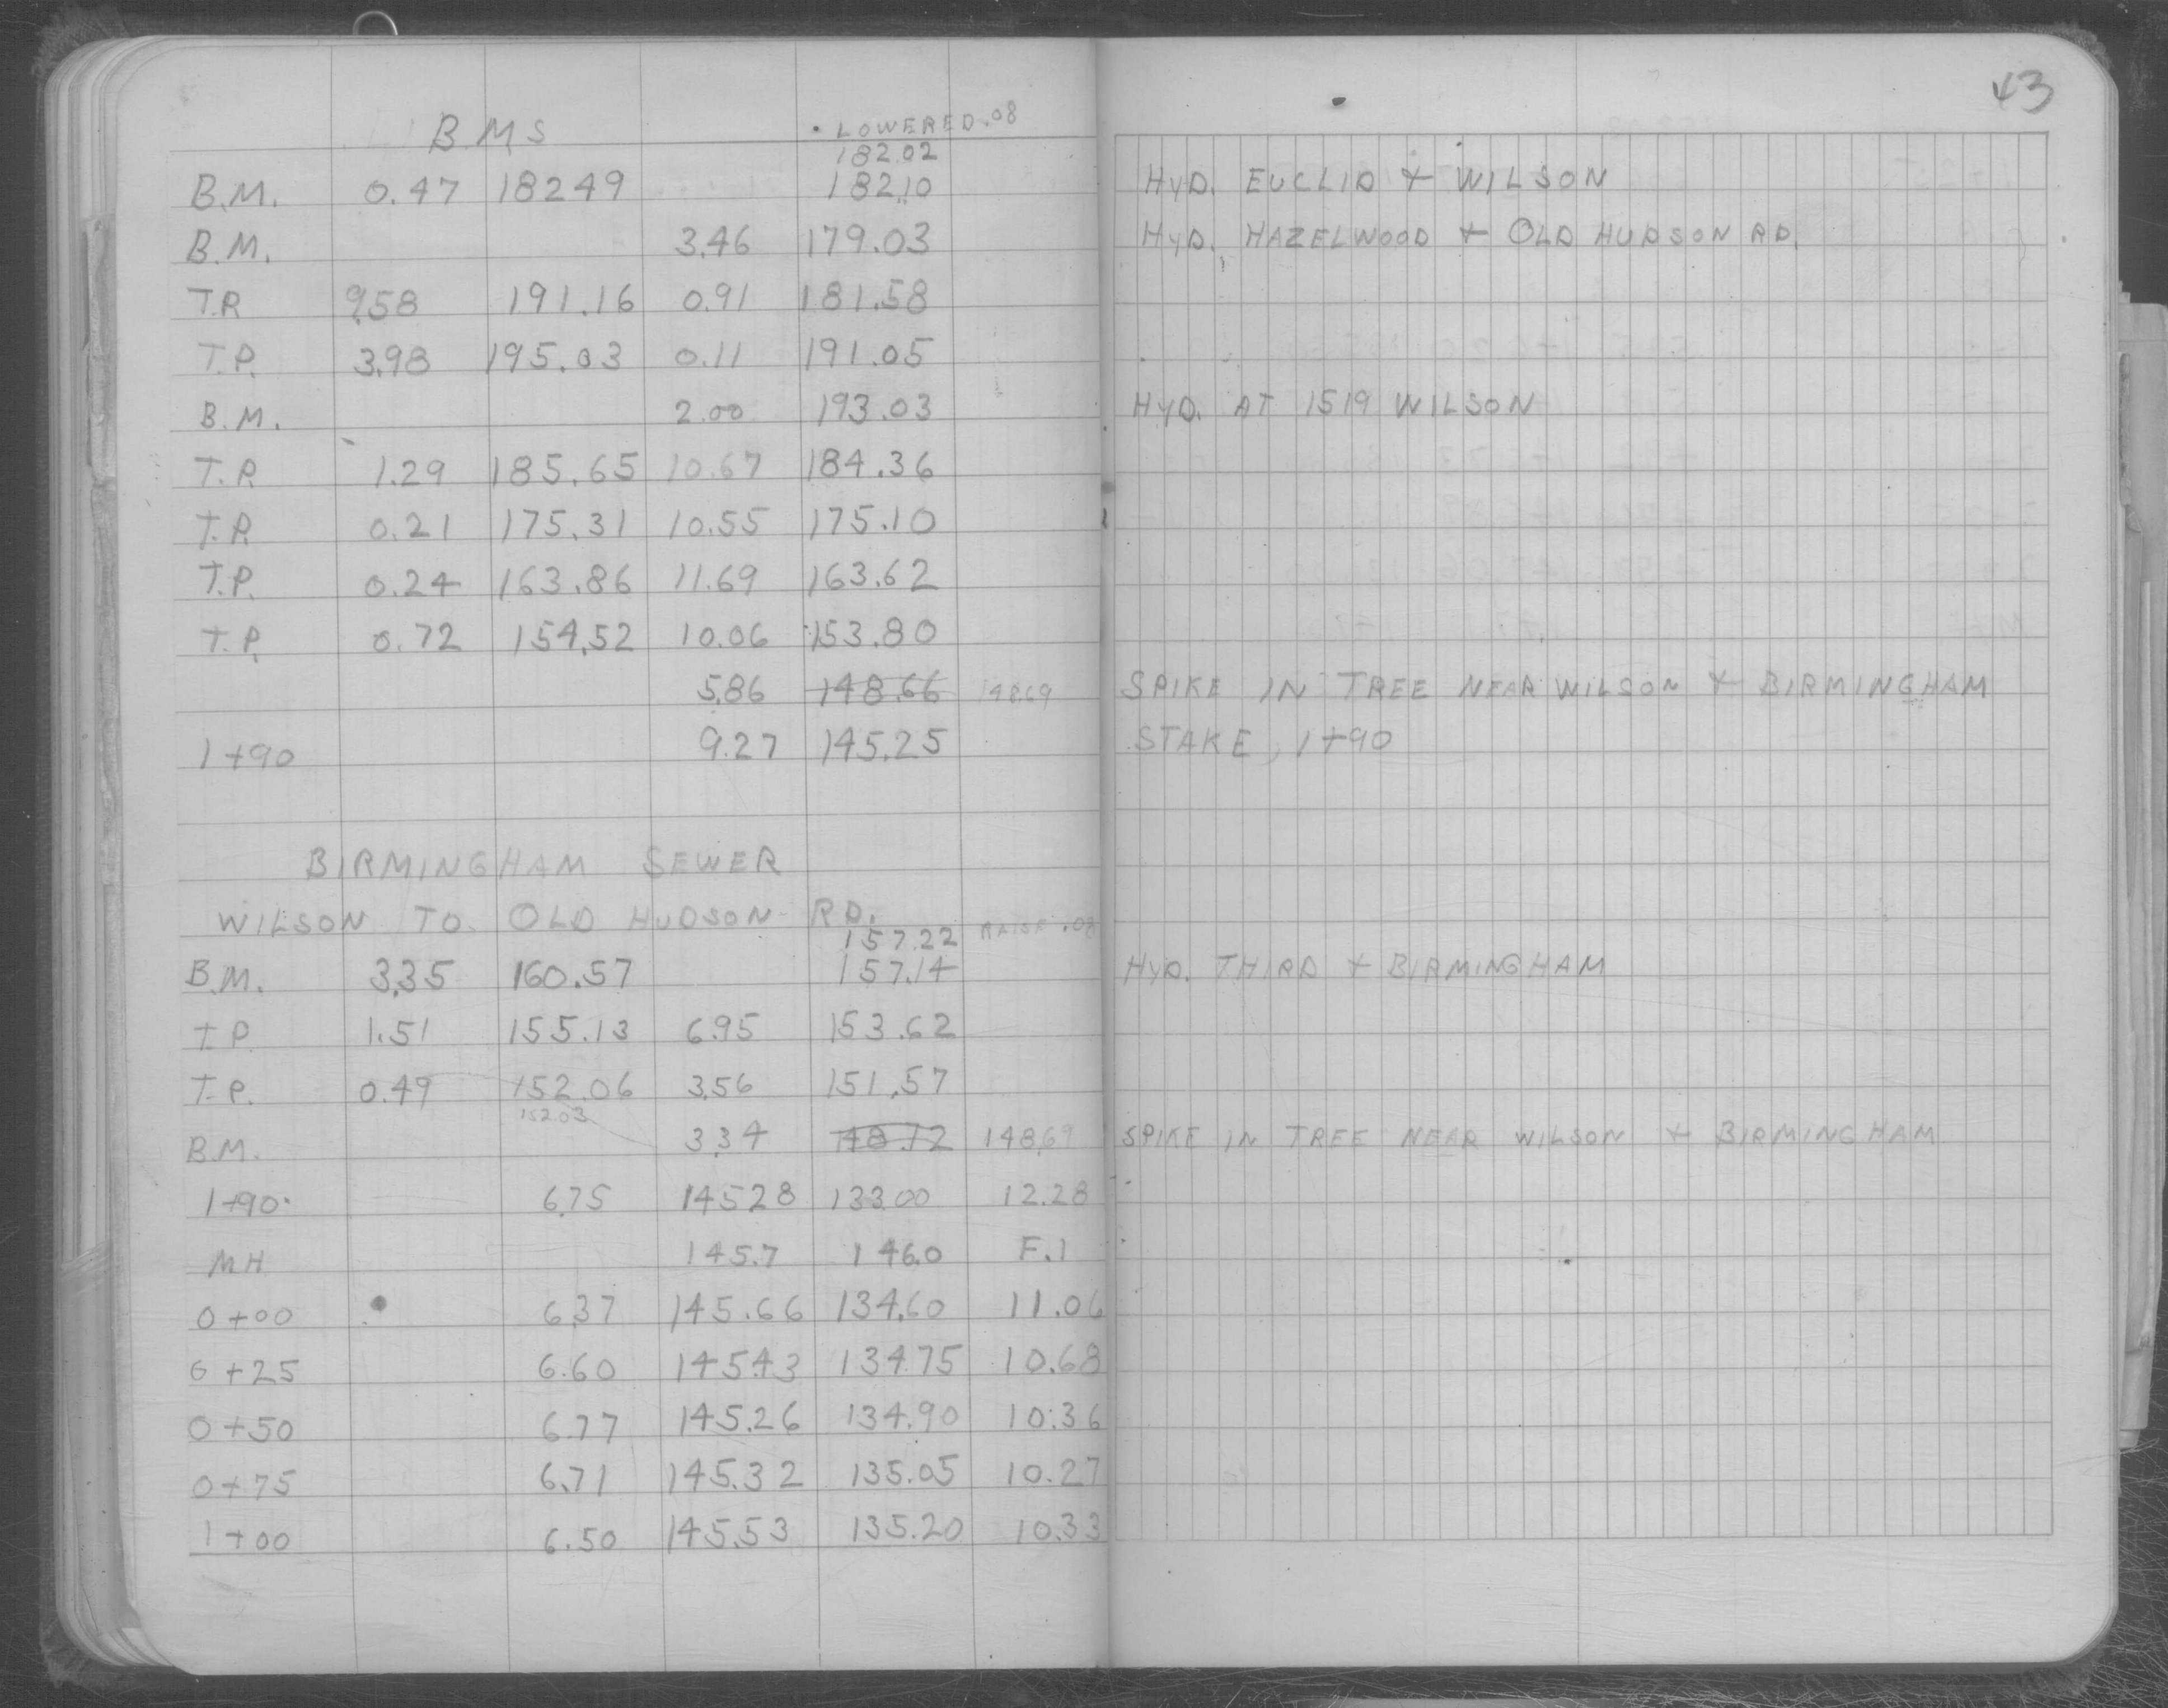 43
B.M.S
• LOWERED .08
182.02
B.M. 0.47 182.49 182.10 HYD. EUCLID + WILSON
B.M. 3.46 179.03 HYD. HAZELWOOD + OLD HUDSON RD.
T.P. 9.58 191.16 0.91 181.58
T.P. 3.98 195.03 0.11 191.05
B.M. 2.00 193.03 HYD. AT 1519 WILSON
T.P. 1.29 185.65 10.67 184.36
T.P. 0.21 175.31 10.55 175.10
T.P. 0.24 163.86 11.69 163.62
T.P. 0.72 154.52 10.06 153.80
5.86 148.66 148.69 SPIKE IN TREE NEAR WILSON + BIRMINGHAM
1+90 9.27 145.25 STAKE, 1+90
BIRMINGHAM SEWER
WILSON TO OLD HUDSON RD.
157.22 RAISE .08
B.M. 3.35 160.57 157.14 HYD. THIRD + BIRMINGHAM
T.P. 1.51 155.13 6.95 153.62
T.P. 0.49 152.06 3.56 151.57
152.03
B.M. 3.34 148.72 148.69 SPIKE IN TREE NEAR WILSON + BIRMINGHAM
1+90 6.75 145.28 133.00 12.28
MH 145.7 146.0 F.1
0+00 6.37 145.66 134.60 11.06
0+25 6.60 145.43 134.75 10.68
0+50 6.77 145.26 134.90 10.36
0+75 6.71 145.32 135.05 10.27
1+00 6.50 145.53 135.20 10.33